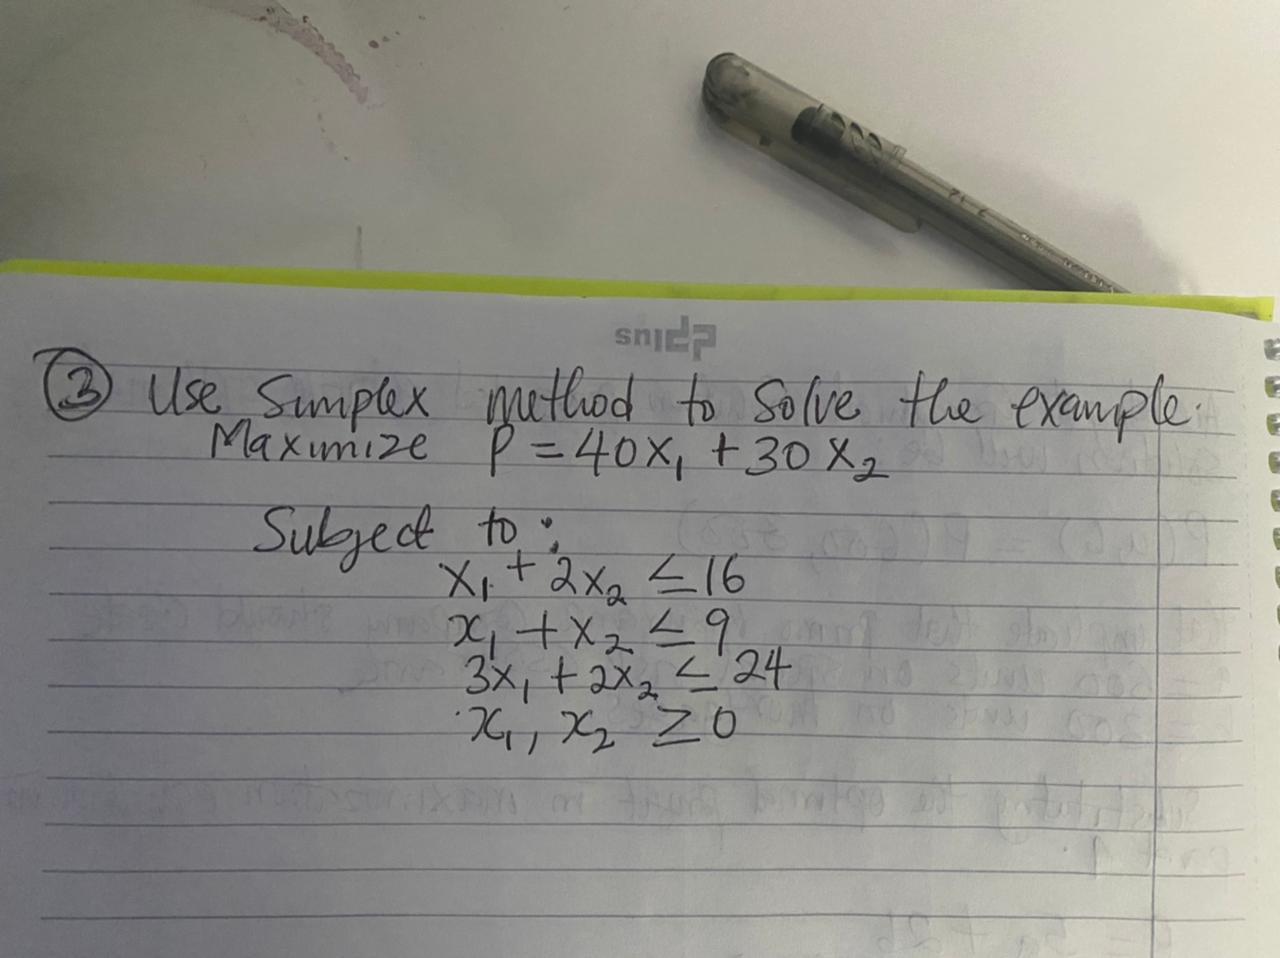 plus
③ Use Simplex method to solve the example.
Maximize P = 40x₁ + 30x₂
Subject to:
x₁ + 2x₂ ≤ 16
x₁ + x₂ ≤ 9
3x₁ + 2x₂ ≤ 24
x₁, x₂ ≥ 0